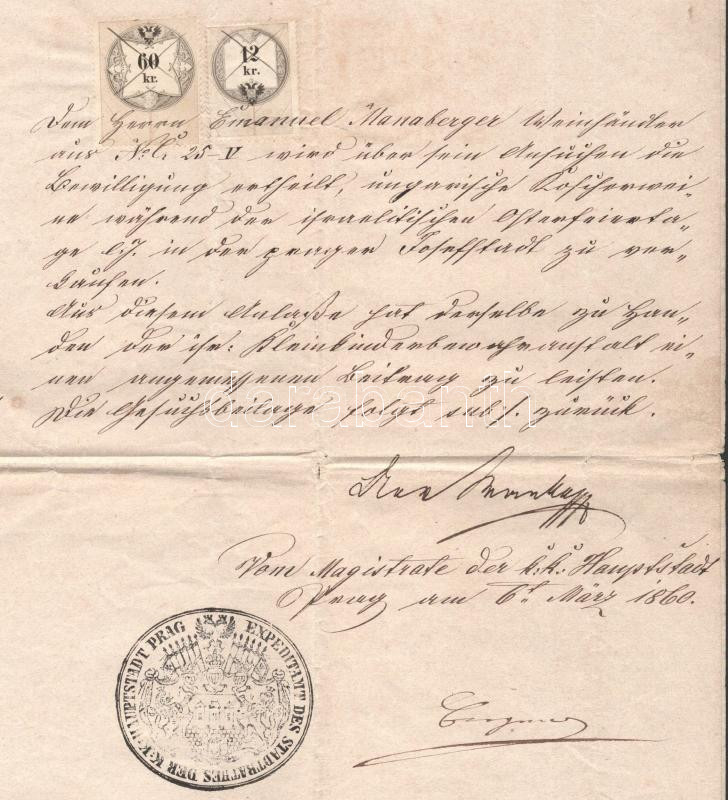 60
kr.
12
kr.
Dem Herrn Emanuel Manaberger Weinhändler
aus No. C. 25-V wird über sein Ansuchen die
Bewilligung ertheilt, ungarische Koscherwei-
ne während der israelitischen Osterfeierta-
ge l. J. in der prager Josefstadt zu ver-
kaufen.
Aus diesem Anlaße hat derselbe zu Han-
den der isr: Kleinkinderbewahranstalt ei-
nen angemessenen Beitrag zu leisten.
Die Gesuchsbeilage folgt sub ·/. zurück.
darabanth
Vom Magistrate der k: k: Hauptstadt
Prag am 6t März 1860.
EXPEDITAMT DES STADTRATHES DER K: K: HAUPTSTADT PRAG